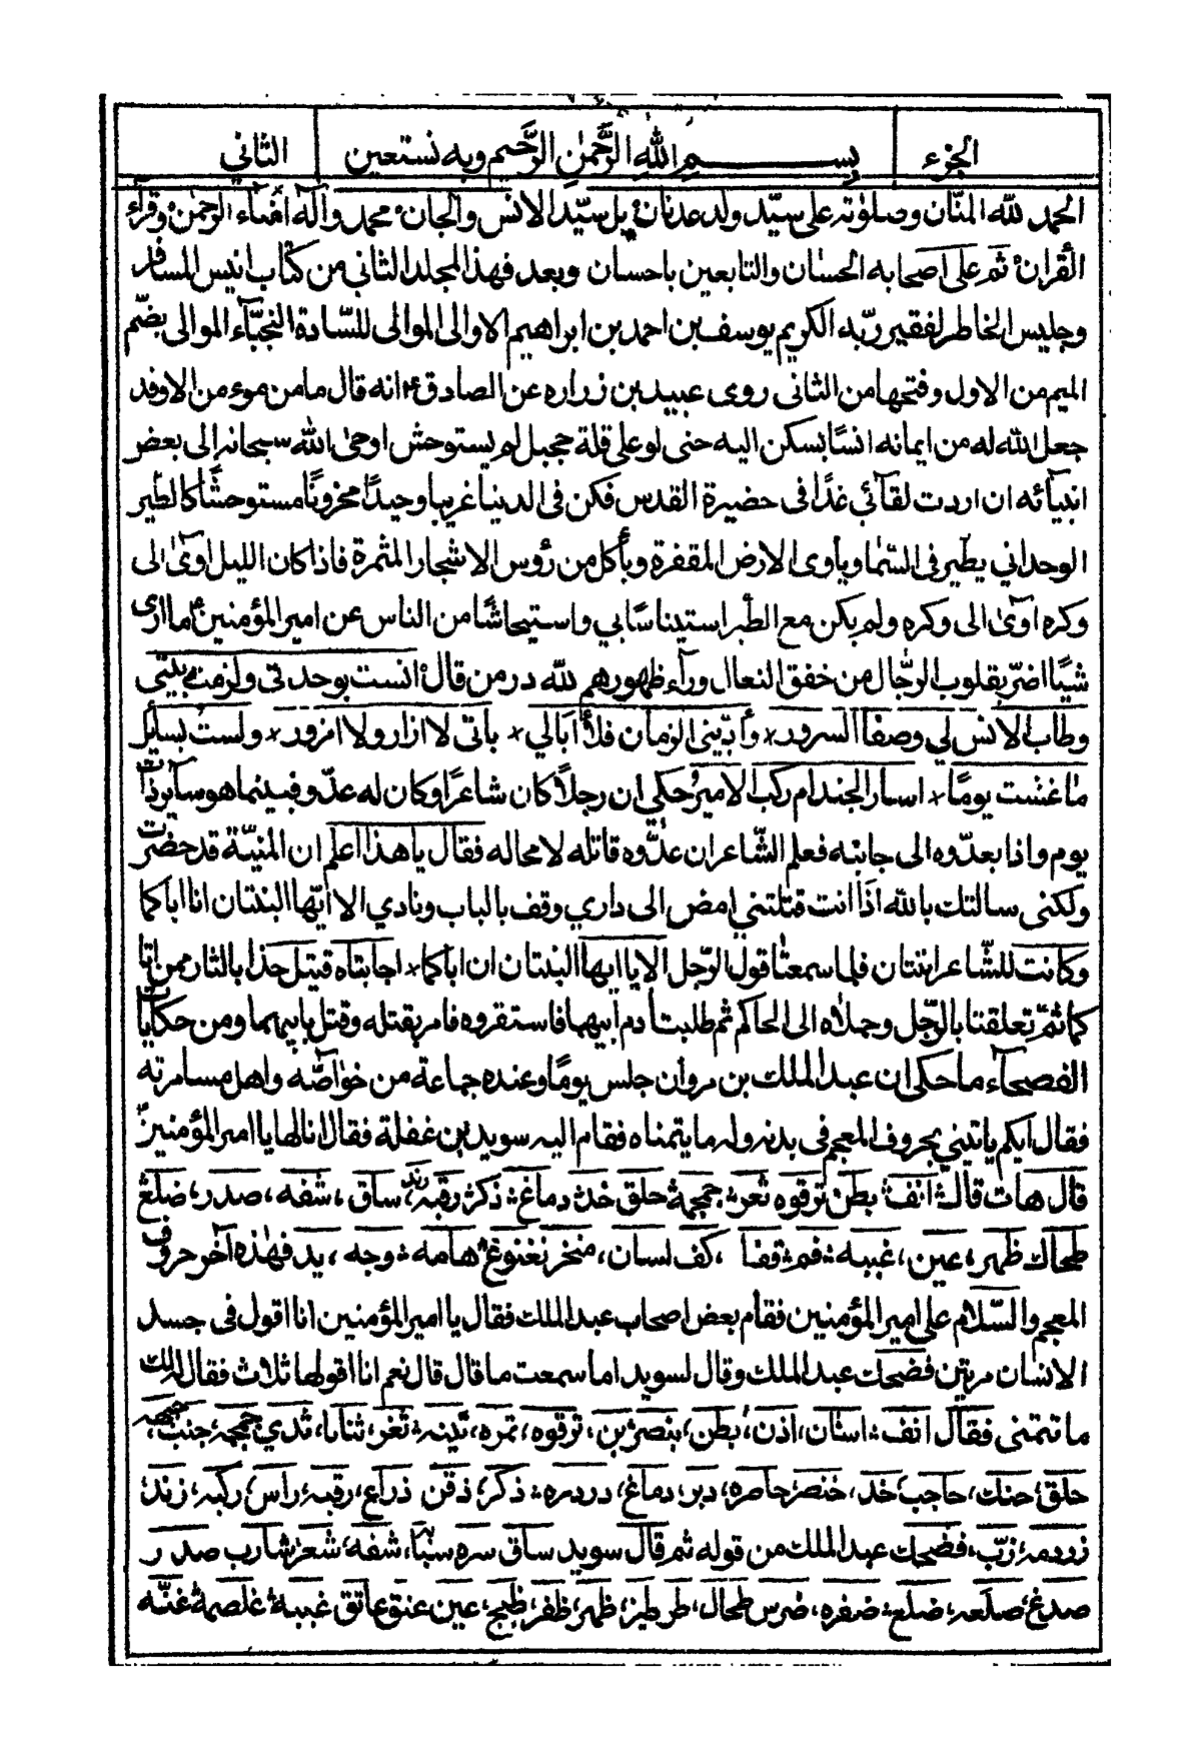 الجزء بسم الله الرَّحمٰنِ الرَّحيم وبه نستعين الثاني
الحمد لله المنّان وصلوٰته على سيّد ولد عدنان بل سيّد الانس والجان محمد وآله امناء الرحمٰن وقرآء
القرآن ثم على اصحابه الحسان والتابعين باحسان وبعد فهذا المجلد الثاني من كتاب انيس المسافر
وجليس الخاطر لفقير ربّه الكريم يوسف بن احمد بن ابراهيم الاوالى الموالى للسّادة النجبآء الموالى بضمّ
الميم من الاول وفتحها من الثانى روى عبيد بن زراره عن الصادق ع انه قال ما من موءمن الا وقد
جعل الله له من ايمانه انسًا يسكن اليه حتى لو على قلة ججبل لم يستوحش اوحىٰ الله سبحانه الى بعض
انبيآئه ان اردت لقآئي غدًا فى حضيرة القدس فكن فى الدنيا غريبا وحيدًا محزونًا مستوحشًا كالطير
الوحداني يطير فى السّما ويأوى الارض المقفرة ويأكل من رؤس الاشجار المثمرة فاذا كان الليل اوىٰ الى
وكره اوىٰ الى وكره ولم يكن مع الطير استيناسًا بي واستيحاشًا من الناس عن امير المؤمنين ع ما ارى
شيًا اضرّ بقلوب الرّجال من خفق النعال ورآء ظهورهم لله در من قال انست بوحدتى ولزمت بيتى
وطاب الانس لي وصفا السرور × وأدّبنى الزمان فلا أبالي × بأنى لا ازار ولا ازور × ولست بسايل
ما عشت يومًا × اسار الجند ام ركب الامير وحكي ان رجلًا كان شاعرًا وكان له عدّو فبينما هو ساير ذات
يوم واذا بعدّوه الى جانبه فعلم الشّاعر ان عدّوه قاتله لا محاله فقال يا هذا اعلم ان المنيّة قد حضرت
ولكنى سالتك بالله اذا انت قتلتنى امض الى داري وقف بالباب ونادي الا ايّها البنتان انا اباكما
وكانت للشّاعر ابنتان فلما سمعتا قول الرّجل الا يا ايها البنتان ان اباكما × اجابتاه قتيل خذا بالثار ممن اتا
كما ثمّ تعلقتا بالرّجل وحملاه الى الحاكم ثم طلبت أدم أبيهما فاستقروه فامر بقتله وقتل بابيهما ومن حكايات
الفصحآء ما حكى ان عبد الملك بن مروان جلس يومًا وعنده جماعة من خوآصّه واهل مسامرته
فقال ايكم ياتيني بحروف المعجم فى بدنه وله ما يتمناه فقام اليه سويد بن غفلة فقال انا لها يا امير المؤمنين
قال هات قال انف بطن ترقوه ثغر جمجمة حلق خد دماغ ذكر رقبه زند ساق ، شفه ، صدر ، ضلع
طحال ظهر ، عين ، غببه فم قفا ، كف لسان ، منخر نغنوغ هامه وجه ، يد فهذه آخر حروف
المعجم والسّلام على امير المؤمنين فقام بعض اصحاب عبد الملك فقال يا امير المؤمنين انا اقول فى جسد
الانسان مرتين فضحك عبد الملك وقال لسويد اما سمعت ما قال قال نعم انا اقولها ثلاث فقال لك
ما تتمنى فقال انف اسنان ، اذن ، بطن ، بنصر ، ترقوه ، تمره ، تينه ثغر ، ثنايا ، ثدي جمجمه ، جنب
حلق ، حنك ، حاجب ، خد ، خنصر ، دبر ، دماغ ، ذكر ، ذقن ذراع ، رقبه ، راس ، ركبه ، زند
زردمه ، زبّ ، فضحك عبد الملك من قوله ثم قال سويد ساق سره ، شفه ، شعر ، شارب صدر
صدغ ، صلعه ، ضلع ، ضفره ، ضرس طحال ، ظهر ، ظفر ، عين عنق عاتق غببة ، غلصمة غنّه